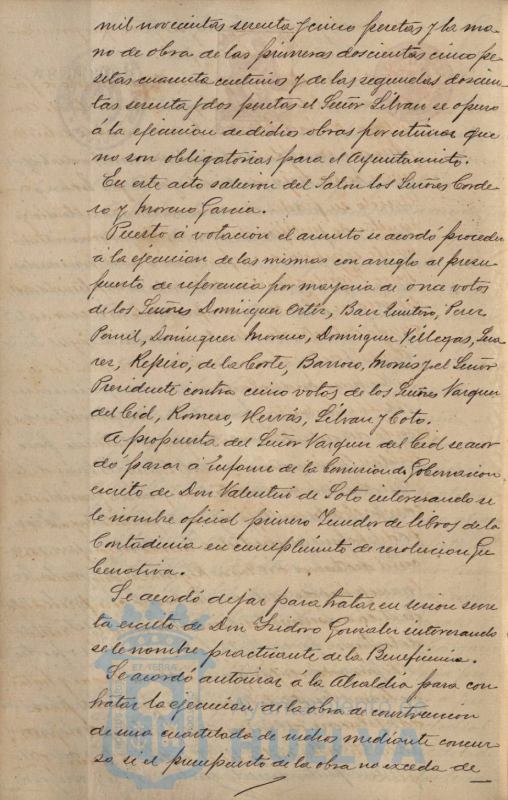 mil novecientas setenta y cinco pesetas y la ma-
no de obra de las primeras doscientas cinco pe-
setas cuarenta centimos y de las segundas doscien-
tas setenta y dos pesetas el Señor Silvan se opuso
á la ejecucion de dichas obras por estimar que
no son obligatorias para el Ayuntamiento.
En este acto salieron del Salon los Señores Corde-
ro y Moreno Garcia.
Puesto á votación el asunto se acordó proceder
á la ejecucion de las mismas con arreglo al presu-
puesto de referencia por mayoria de once votos
de los Señores Dominguez Ortiz, Quintero, Perez
Dominguez Moreno, Dominguez Villegas, Sua-
rez, de la Corte, Barroso, Monis y el Señor
Presidente contra cinco votos de los Señores Vazquez
del Cid, Romero, Hervás, Silvan y Coto.
A propuesta del Señor Vazquez del Cid se acor-
dó pasar á informe de la Comision de Gobernacion
escrito de Don Valentin de Soto interesando se
le nombre oficial primero Tenedor de libros de la
Contaduria en cumplimto de resolucion Gu-
bernativa.
Se acordó dejar para tratar en sesion secre-
ta escrito de Don Isidoro Gonzalez interesando
se le nombre practicante de la Beneficencia.
Se acordó autorizar á la Alcaldia para con-
tratar la ejecución de la obra de construccion
de una cuartelada de nichos mediante concur-
so, si el presupuesto de la obra no exceda de
Ayuntamiento de
HUELVA